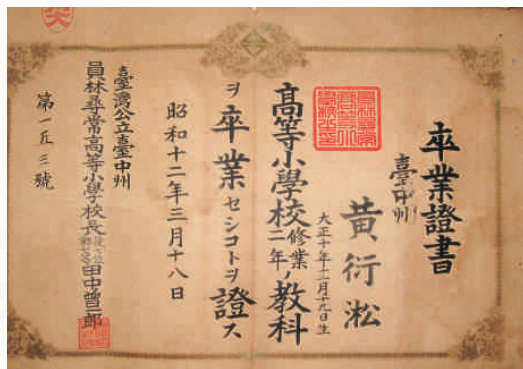 卒業證書
臺中州
黄衍淞
大正十年十二月十九日生
高等小學校修業二年ノ教科
ヲ卒業セシコトヲ證ス
昭和十二年三月十八日
臺灣公立臺中州
員林尋常高等小學校長田中曽一郎
第一五三號